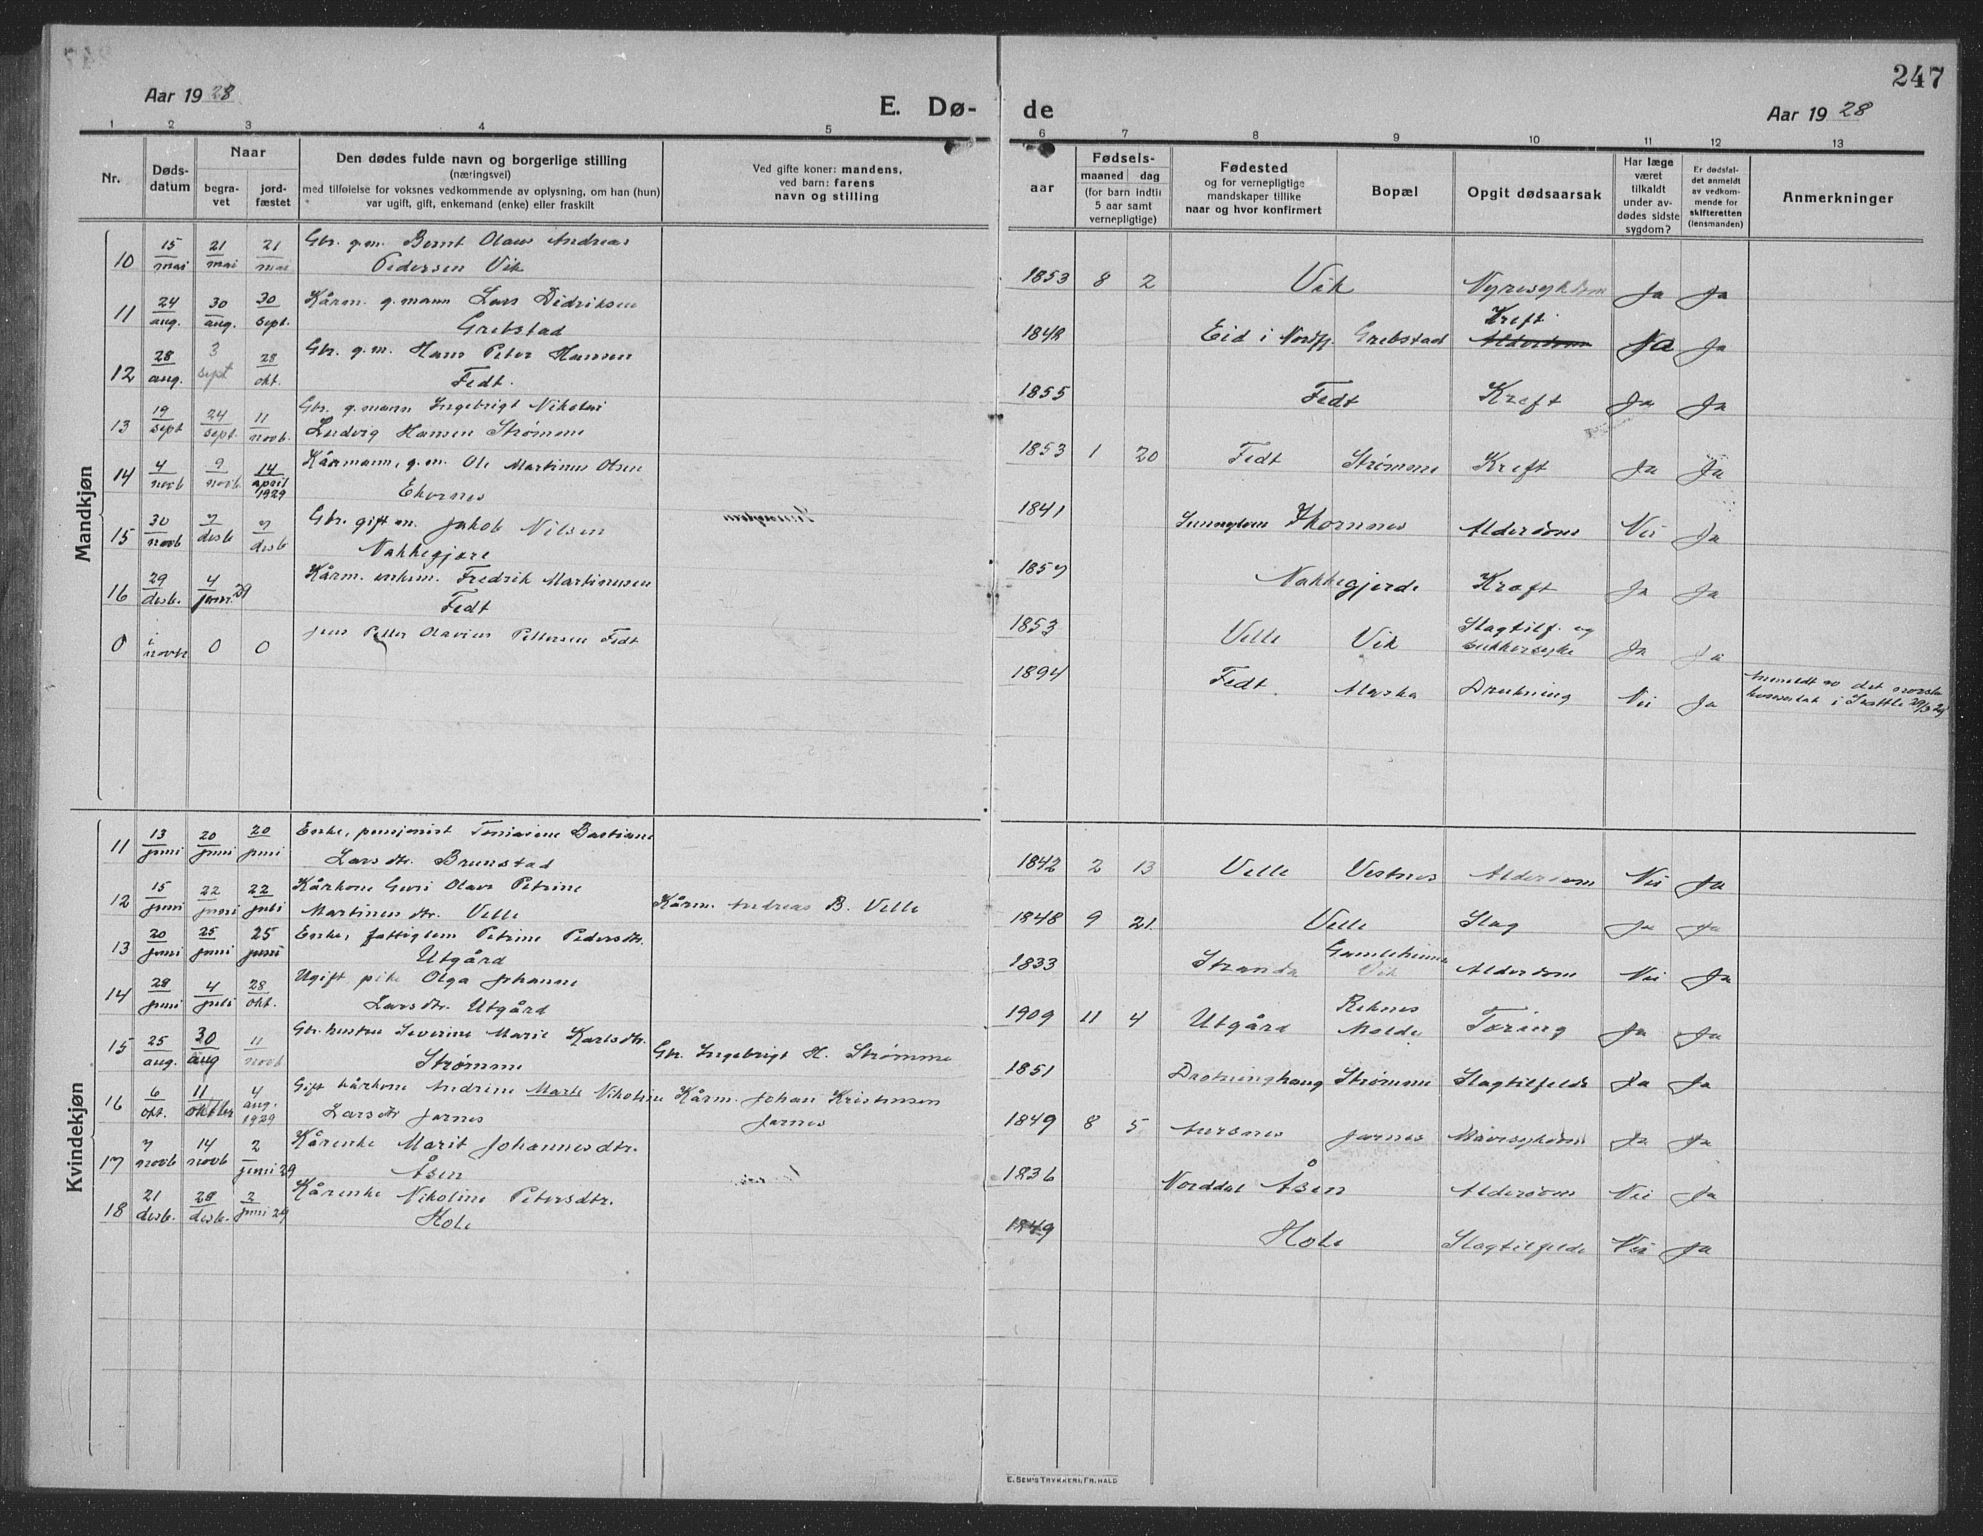 247
Aar 1928
E. Dø-
de
Aar 1928
1 2 3 4 5 6 7 8 9 10 11 12 13
Nr.
Døds-
datum
Naar
begra-
vet
jord-
fæstet
Den dødes fulde navn og borgerlige stilling
(næringsvei)
med tilføielse for voksnes vedkommende av oplysning, om han (hun)
var ugift, gift, enkemand (enke) eller fraskilt
Ved gifte koner: mandens,
ved barn: farens
navn og stilling
aar
Fødsels-
maaned dag
(for barn indtil
5 aar samt
vernepligtige)
Fødested
og for vernepligtige
mandskaper tillike
naar og hvor konfirmert
Bopæl
Opgit dødsaarsak
Har læge
været
tilkaldt
under av-
dødes sidste
sygdom?
Er dødsfal-
det anmeldt
av vedkom-
mende for
skifteretten
(lensmanden)
Anmerkninger
Mandkjøn
10 15/mai 21/mai 21/mai Gbr. g.m. Bernt Olaus Andreas
Pedersen Vik 1853 8 2 Vik Nyresykdom Ja Ja
11 24/aug. 30/aug. 30/sept. Kårm. g. mann Lars Didriksen
Grebstad 1842 Eid i Nordfj. Grebstad Kreft Alderdom Ja Ja
12 28/aug. 3 sept 28/okt. Gbr. g.m. Hans Peter Hansen
Fedt. 1855 Fedt Kreft Ja Ja
13 19/sept 24/sept. 11/novb. Gbr. g. mann Ingebrigt Nikolai
Ludvig Hansen Strømme 1853 1 20 Fedt Strømme Kreft Ja Ja
14 4/novb 9/novb 14/april 1929 Kårmann, g.m. Ole Martinus Olsen
Ekornes 1841 Ikornnes Alderdom Nei Ja
15 30/novb 7/desb 7/desb Gbr. gift m. Jakob Nilsen
Nakkegjære 1857 Nakkegjerde Kræft Ja Ja
16 29/desb. 4/januar 29 Kårm. enkem. Fredrik Martinusen
Fedt 1853 Velle Vik Slagtilf. og
sukkersyke Ja Ja
0 1/novbr 0 0 Jens Petter Olavius Pettersen Fedt 1894 Fedt. Alaska Drukning Nei Ja
det norske
konsulat i Seattle 20/3 29
Kvindekjøn
11 13/juni 20/juni 20/juni Enke, pensjonist Tomasine Bastiane
Larsdtr. Brunstad 1842 2 13 Velle Vestnes Alderdom Nei Ja
12 15/juni 22/juni 22/juli Kårkone Guri Olave Petrine
Martinusdtr. Velle Kårm. Andreas B. Velle 1848 9 21 Velle Slag Ja Ja
13 20/juni 25/juni 25 juni Enke, fattiglem Petrine Pedersdtr.
Utgård 1833 Stranda Gamleheimen
Vik Alderdom Nei Ja
14 28/juni 4/juli 28/okt. Ugift pike Olga Johanne
Larsdtr. Utgård 1909 11 4 Utgård Reknes
Molde Tæring Ja Ja
15 25/aug. 30/aug 11/novb Gbr. hustru Severine Marie Karlsdtr.
Strømme Gbr. Ingebrigt H. Strømme 1851 Dronninghaug Strømme Slagtilfelde Ja Ja
16 6/okt. 11/oktbr 4/aug. 1929 Gift kårkone Andrine Marte Nikoline
Larsdtr Jarnes Kårm. Johan Kristensen
Jarnes 1849 8 5 Aursnes Jarnes Mavesykdom Ja Ja
17 7/novb 14/novb 2/juni 29 Kårenke Marit Johannesdtr.
Åsen 1836 Norddal Åsen Alderdom Nei Ja
18 21/desb. 28/desb. 2/juni 29 Kårenke Nikoline Petersdtr.
Hole 1849 Hole Slagtilfelde Nei Ja
E. SEM'S TRYKKERI, FR.HALD